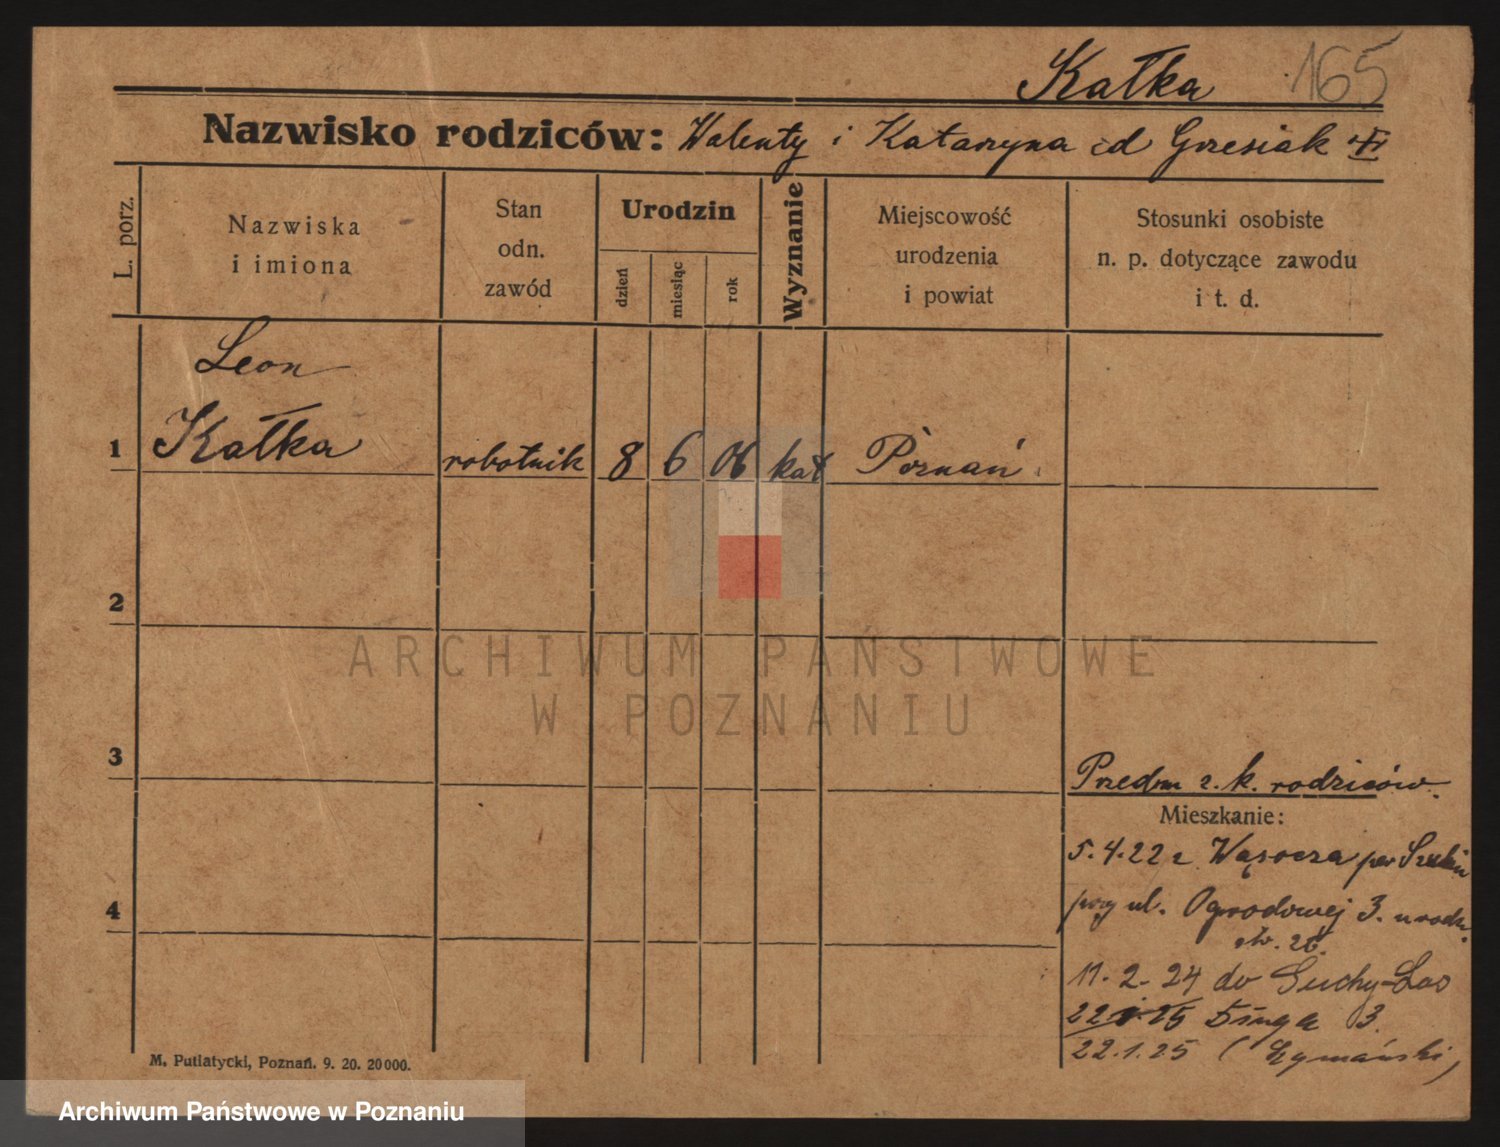 Kałka 165
Nazwisko rodziców: Walenty i Katarzyna z d Grzesiak
L. porz.
Nazwiska
i imiona
Stan
odn.
zawód
Urodzin
dzień
miesiąc
rok
Wyznanie
Miejscowość
urodzenia
i powiat
Stosunki osobiste
n. p. dotyczące zawodu
i t. d.
Leon
1 Kałka robotnik 8 6 06 kat Poznań
2
3
4
Przedm z. k. rodziców.
Mieszkanie:
5.4.22 z Wąsocza pow Szubin
przy ul. Ogrodowej 3. u rodz.
11.2.24 do Suchy-Las
Długa 3
22.1.25 (Szymański)
M. Putiatycki, Poznań. 9. 20. 20000.
ARCHIWUM PAŃSTWOWE
W POZNANIU
Archiwum Państwowe w Poznaniu